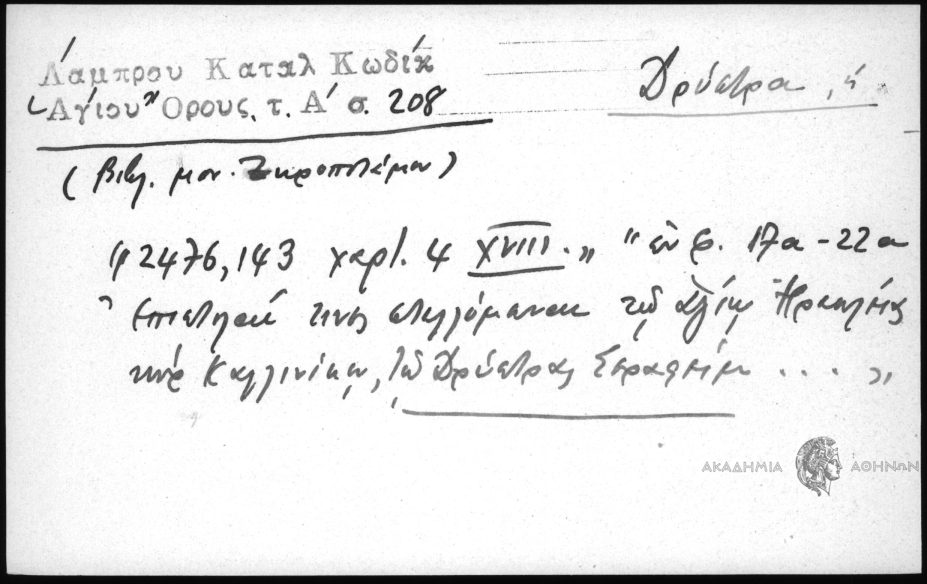 Λάμπρου Καταλ Κωδίκ
Ἁγίου Ὄρους, τ. Α' σ. 208
Δρύστρα, ἡ
(βιβλ. μον. Ξηροποτάμου)
"2476,143 χαρτ. 4 XVIII." "ἐν φ. 17α-22α
Ἐπιστολαί τινος στελλόμεναι τῷ ἁγίῳ Ἡρακλείας
κύρ Καλλινίκῳ, τῷ Δρύστρας Σεραφείμ . . . . "
ΑΚΑΔΗΜΙΑ ΑΘΗΝΩΝ